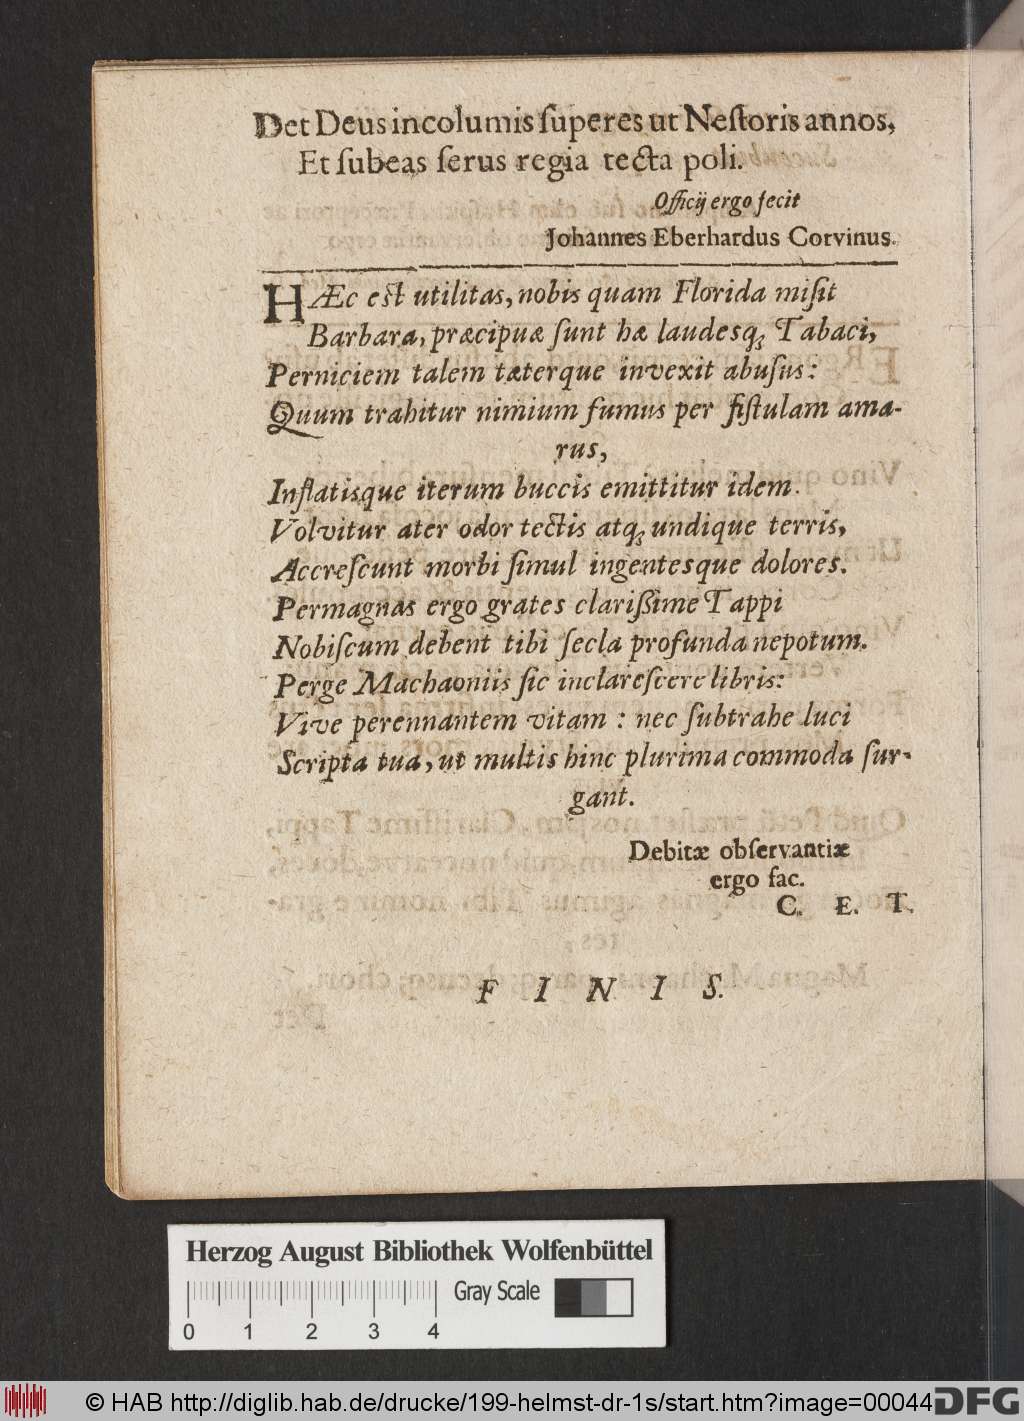 Det Deus incolumis ſuperes ut Neſtoris annos,
Et ſubeas ſerus regia tecta poli.
Officij ergo fecit
Johannes Eberhardus Corvinus.
HÆc eſt utilitas, nobis quam Florida miſit
Barbara, præcipuæ ſunt hæ laudesq́ꝫ Tabaci,
Perniciem talem tæterque invexit abuſus:
Quum trahitur nimium fumus per fiſtulam ama-
rus,
Inflatisque iterum buccis emittitur idem.
Volvitur ater odor tectis atqꝫ undique terris,
Accreſcunt morbi ſimul ingentesque dolores.
Permagnas ergo grates clarißime Tappi
Nobiſcum debent tibi ſecla profunda nepotum.
Perge Machaoniis ſic inclareſcere libris:
Vive perennantem vitam : nec ſubtrahe luci
Scripta tua, ut multis hinc plurima commoda ſur-
gant.
Debitæ obſervantiæ
ergo fac.
C. E. T.
F I N I S.
Herzog August Bibliothek Wolfenbüttel
Gray Scale
0 1 2 3 4
© HAB http://diglib.hab.de/drucke/199-helmst-dr-1s/start.htm?image=00044
DFG